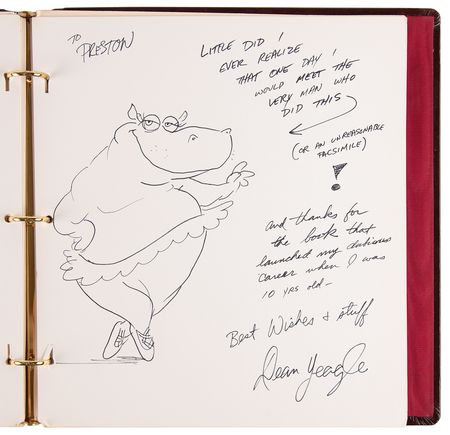 TO
PRESTON
LITTLE DID I
EVER REALIZE
THAT ONE DAY I
WOULD MEET THE
VERY MAN WHO
DID THIS
(OR AN UNREASONABLE
FACSIMILE)
!
and thanks for
the book that
launched my dubious
career when I was
10 yrs old-
Best Wishes & stuff
Dean Yeagle